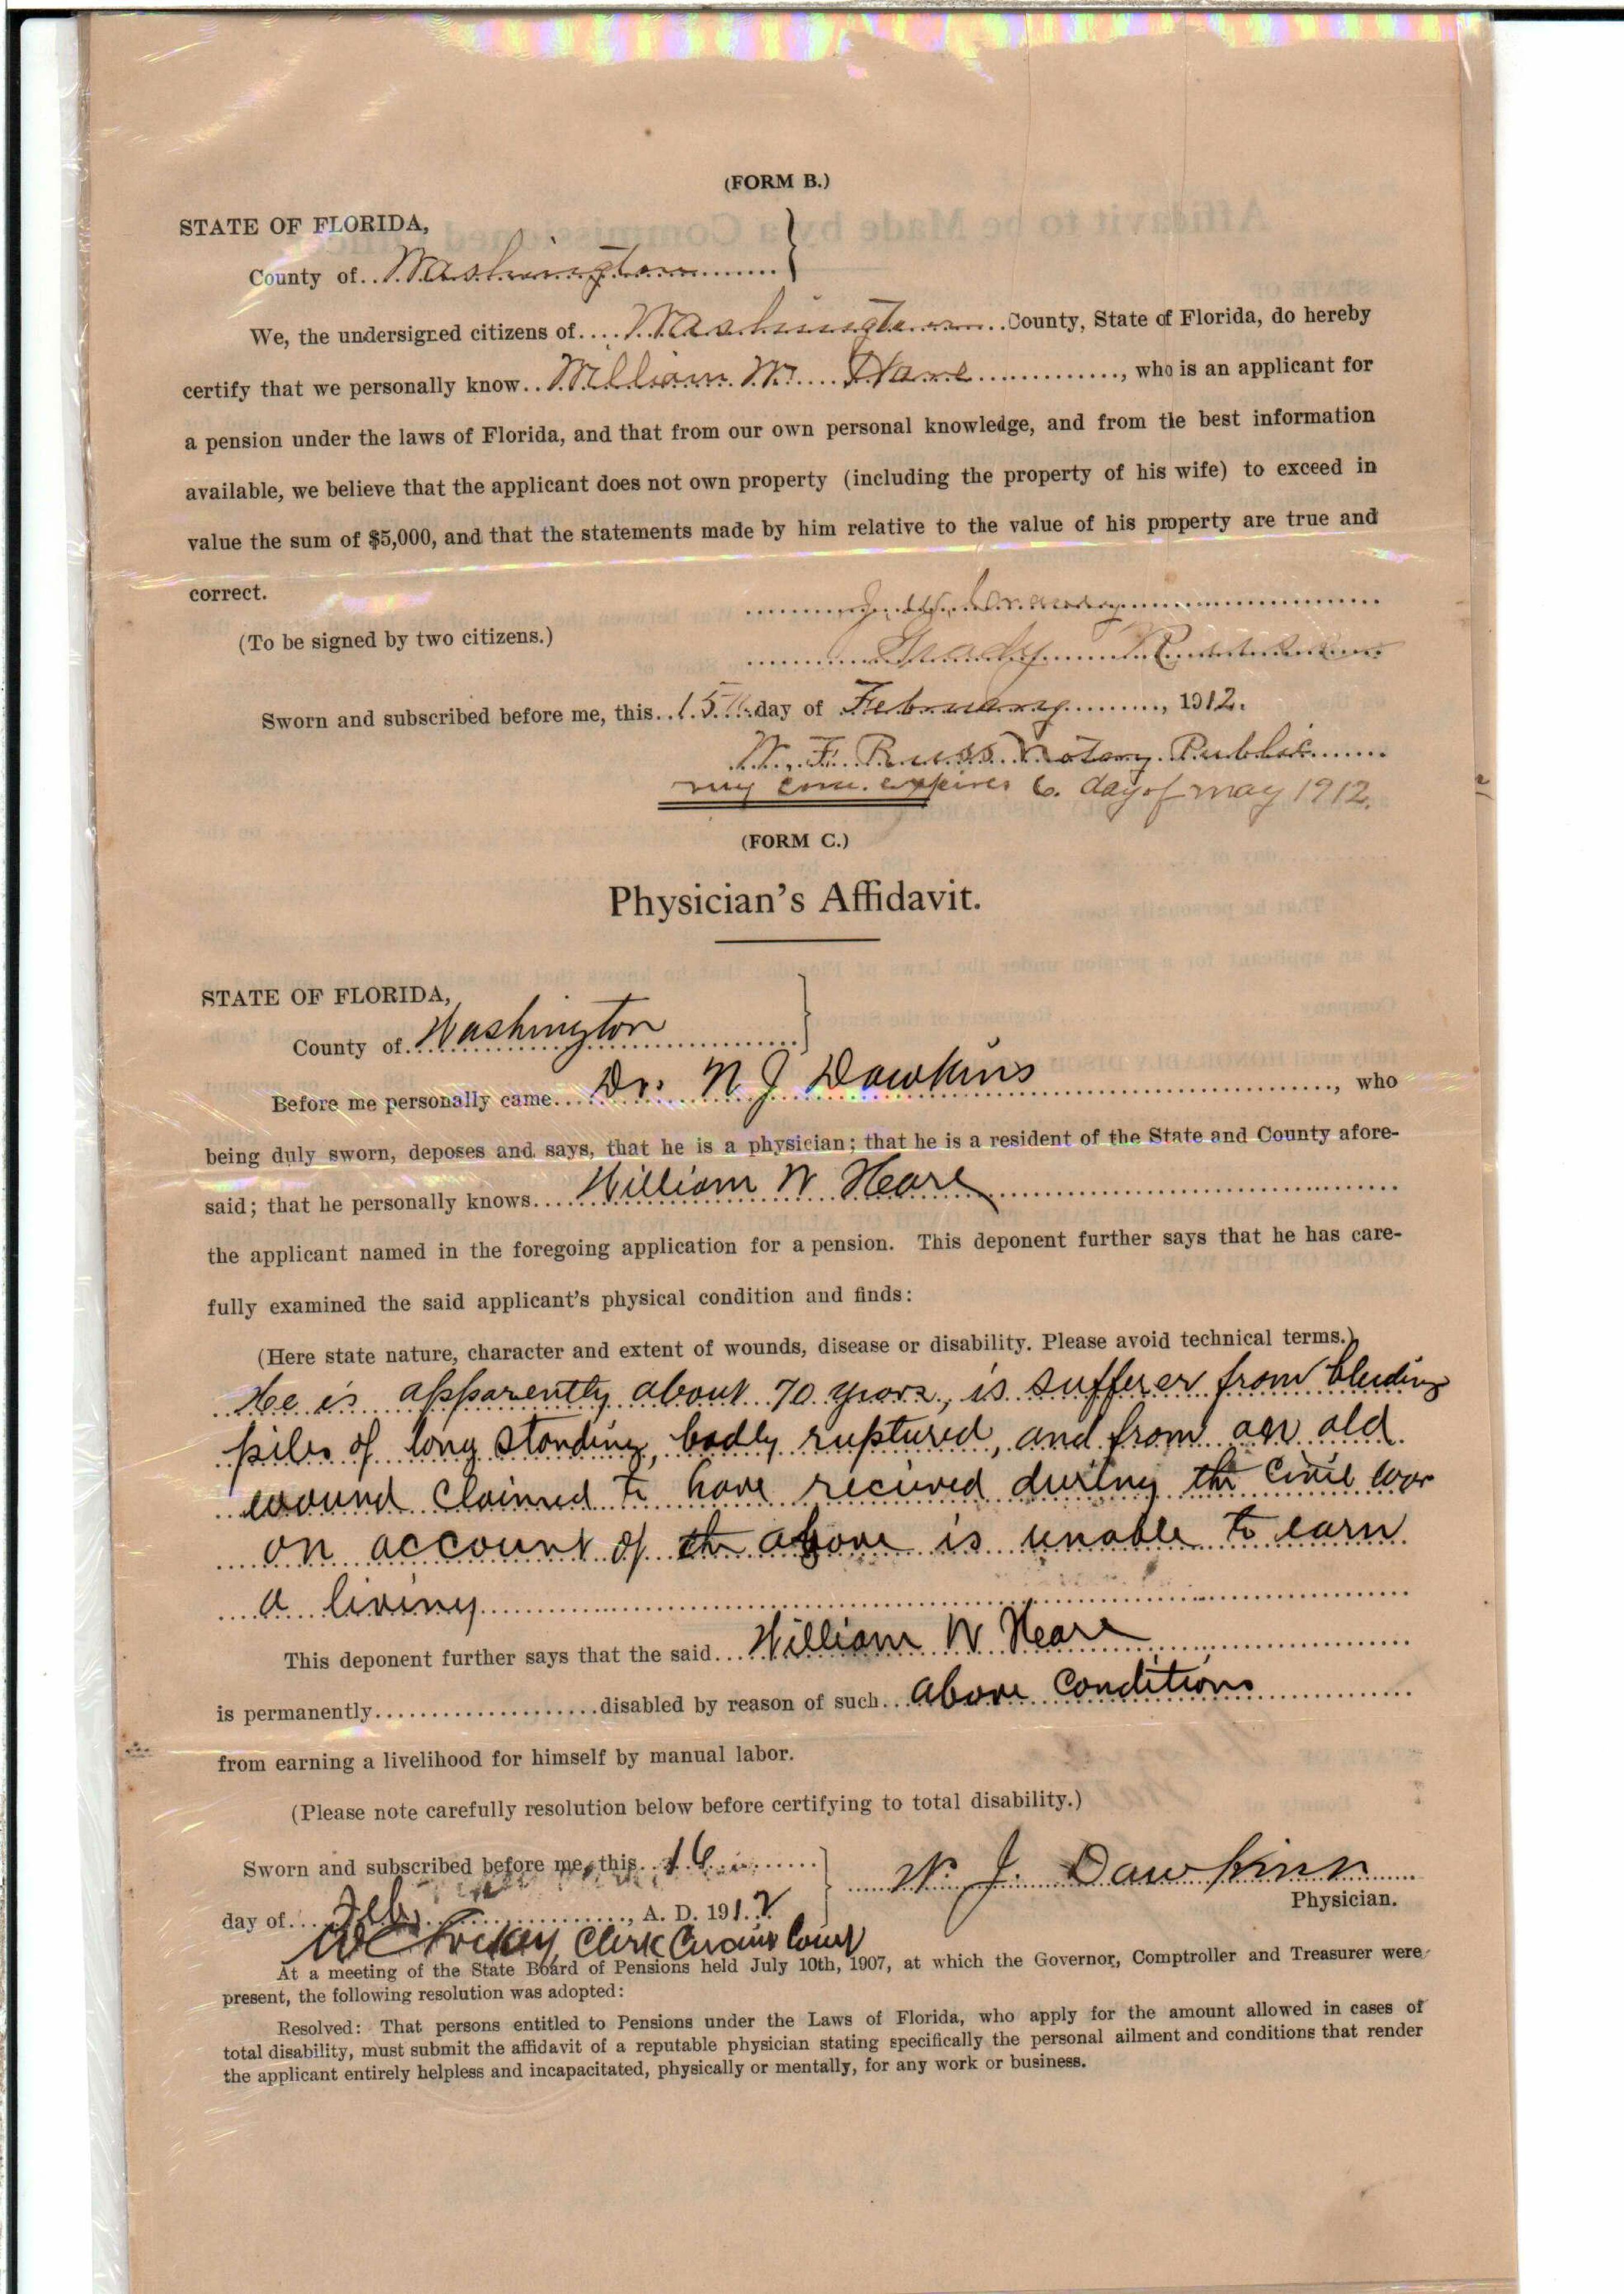 (FORM B.)
STATE OF FLORIDA,
County of Washington
We, the undersigned citizens of Washington County, State of Florida, do hereby
certify that we personally know William W. Hare, who is an applicant for
a pension under the laws of Florida, and that from our own personal knowledge, and from the best information
available, we believe that the applicant does not own property (including the property of his wife) to exceed in
value the sum of $5,000, and that the statements made by him relative to the value of his property are true and
correct.
(To be signed by two citizens.)
Grady
Sworn and subscribed before me, this 15th day of February, 1912.
W. F. Russ Notary Public
my com. expires 6. day of may 1912.
(FORM C.)
Physician's Affidavit.
STATE OF FLORIDA,
County of Washington
Before me personally came Dr. N J Dawkins, who
being duly sworn, deposes and says, that he is a physician; that he is a resident of the State and County afore-
said; that he personally knows William W Heare
the applicant named in the foregoing application for a pension. This deponent further says that he has care-
fully examined the said applicant's physical condition and finds:
(Here state nature, character and extent of wounds, disease or disability. Please avoid technical terms.)
He is apparently about 70 years, is sufferer from bleeding
piles of long standing, badly ruptured, and from an old
wound claimed to have recieved during the Civil war
on account of the above is unable to earn
a living
This deponent further says that the said William W Heare
is permanently disabled by reason of such above conditions
from earning a livelihood for himself by manual labor.
(Please note carefully resolution below before certifying to total disability.)
Sworn and subscribed before me, this 16
day of Feb, A. D. 1912
N. J. Dawkins
Physician.
Clerk Circuit Court
At a meeting of the State Board of Pensions held July 10th, 1907, at which the Governor, Comptroller and Treasurer were
present, the following resolution was adopted:
Resolved: That persons entitled to Pensions under the Laws of Florida, who apply for the amount allowed in cases of
total disability, must submit the affidavit of a reputable physician stating specifically the personal ailment and conditions that render
the applicant entirely helpless and incapacitated, physically or mentally, for any work or business.